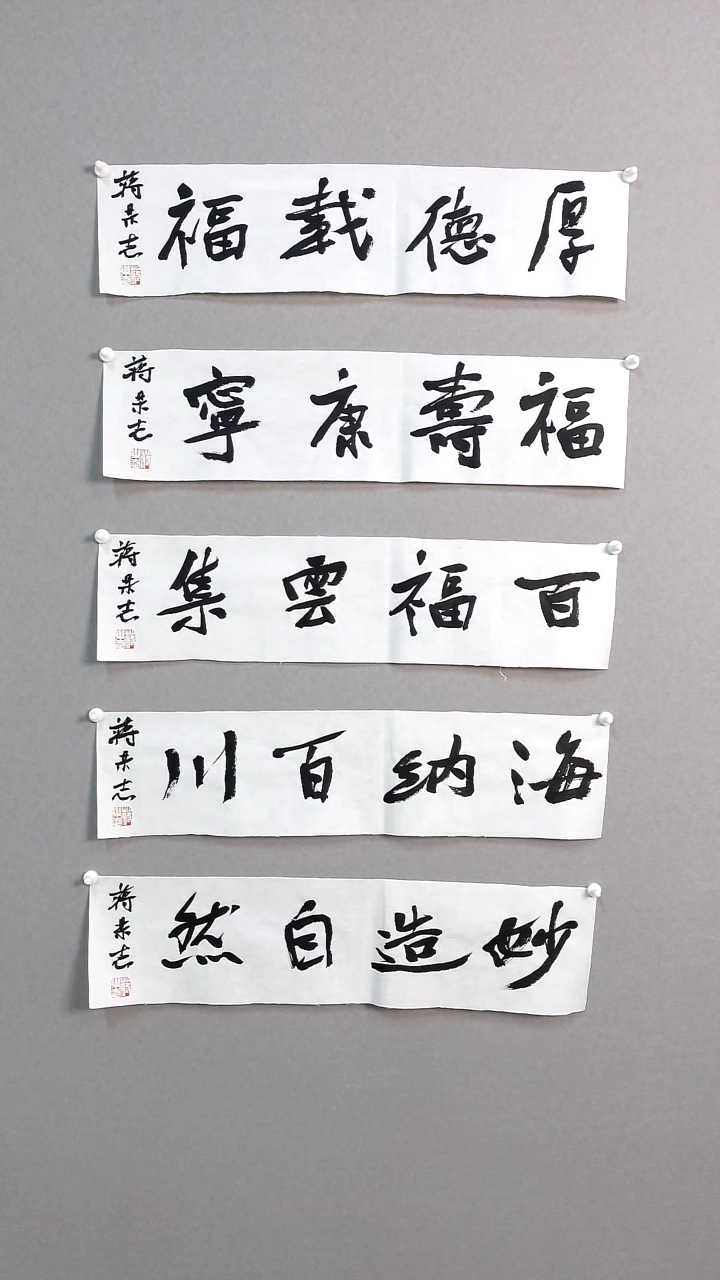 厚德載福
蔣來志
福壽康寧
蔣來志
百福雲集
蔣來志
海納百川
蔣來志
妙造自然
蔣來志